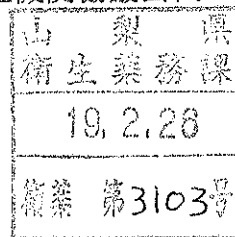 山梨県
衛生薬務課
19.2.28
衛薬 第3103号